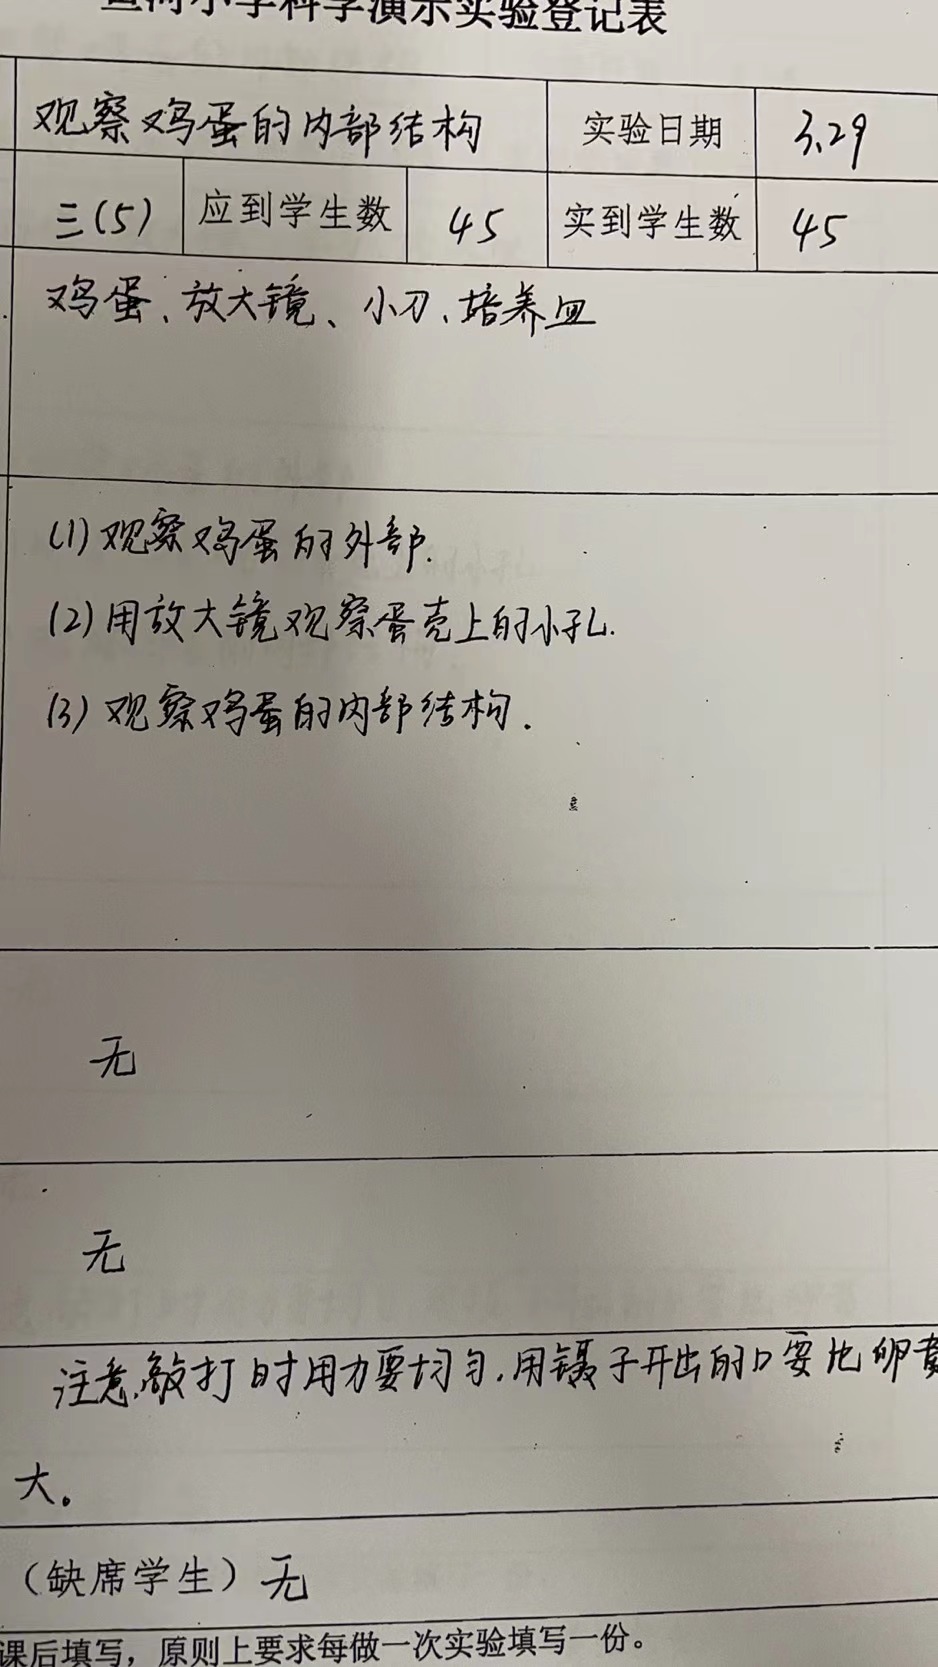 小学科学演示实验登记表
观察鸡蛋的内部结构 实验日期 3.29
三(5) 应到学生数 45 实到学生数 45
鸡蛋、放大镜、小刀、培养皿
(1) 观察鸡蛋的外部.
(2) 用放大镜观察蛋壳上的小孔.
(3) 观察鸡蛋的内部结构.
无
无
注意敲打时用力要均匀,用镊子开出的口要比卵黄
大。
(缺席学生) 无
课后填写,原则上要求每做一次实验填写一份。